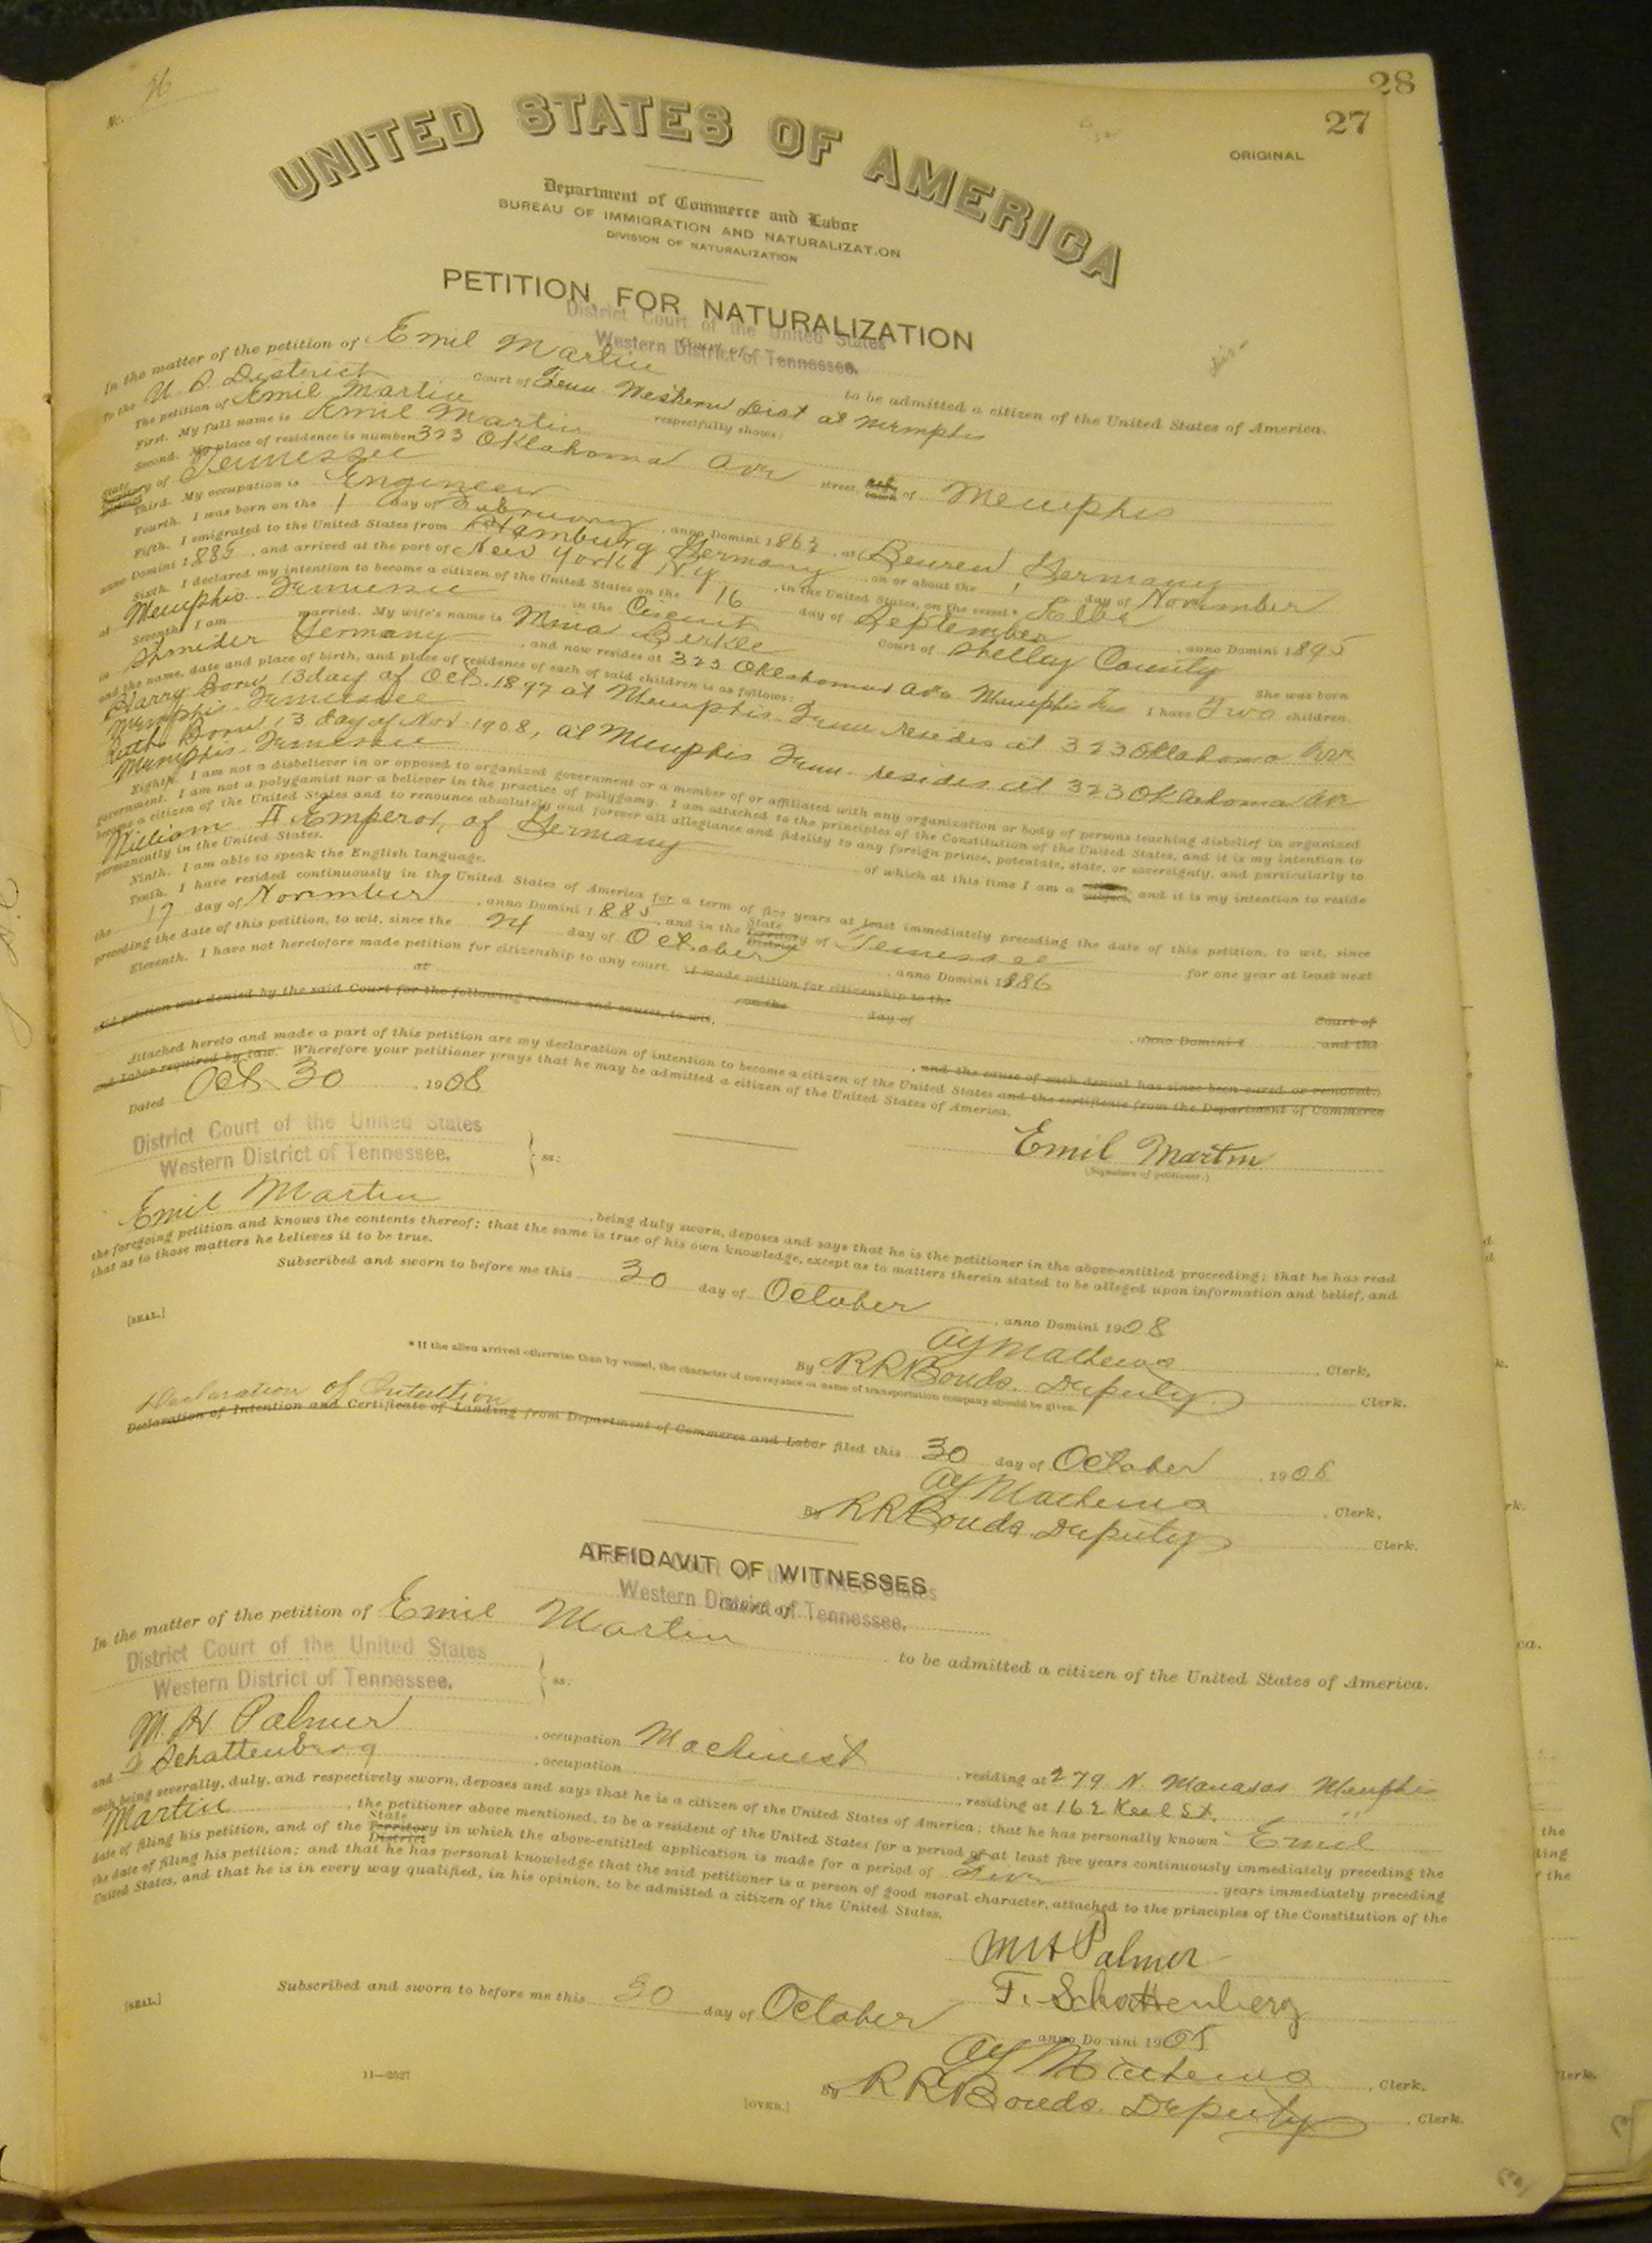 28
27
No. 26
ORIGINAL
UNITED STATES OF AMERICA
Department of Commerce and Labor
BUREAU OF IMMIGRATION AND NATURALIZATION
DIVISION OF NATURALIZATION
PETITION FOR NATURALIZATION
District Court of the United States
Western District of Tennessee.
Court of
In the matter of the petition of Emil Martin to be admitted a citizen of the United States of America.
To the U. S. District Court of Tenn Western Dist at Memphis
The petition of Emil Martin respectfully shows:
First. My full name is Emil Martin
Second. My place of residence is number 323 Oklahoma Ave street, city town of Memphis
State Territory District of Tennessee
Third. My occupation is Engineer
Fourth. I was born on the 1 day of February, anno Domini 1863, at Beuren, Germany
Fifth. I emigrated to the United States from Hamburg Germany, on or about the 1 day of November
anno Domini 1885, and arrived at the port of New York N Y, in the United States, on the vessel* Elba
Sixth. I declared my intention to become a citizen of the United States on the 16 day of September, anno Domini 1895
at Memphis Tennessee in the Circuit Court of Shelby County
Seventh. I am married. My wife's name is Mina Berkle She was born
in Germany, and now resides at 323 Oklahoma Ave Memphis Tenn I have Two children,
and the name, date and place of birth, and place of residence of each of said children is as follows:
Harry Born 13 day of Oct. 1897 at Memphis Tenn resides at 323 Oklahoma Ave
Memphis Tennessee
Ruth Born 13 day of Nov 1908, at Memphis Tenn. resides at 323 Oklahoma Ave
Memphis Tennessee
Eighth. I am not a disbeliever in or opposed to organized government or a member of or affiliated with any organization or body of persons teaching disbelief in organized
government. I am not a polygamist nor a believer in the practice of polygamy. I am attached to the principles of the Constitution of the United States, and it is my intention to
become a citizen of the United States and to renounce absolutely and forever all allegiance and fidelity to any foreign prince, potentate, state, or sovereignty, and particularly to
William II Emperor, of Germany of which at this time I am a subject, and it is my intention to reside
permanently in the United States.
Ninth. I am able to speak the English language.
Tenth. I have resided continuously in the United States of America for a term of five years at least immediately preceding the date of this petition, to wit, since
the 17 day of November, anno Domini 1885, and in the State Territory District of Tennessee for one year at least next
preceding the date of this petition, to wit, since the 24 day of October, anno Domini 1886
Eleventh. I have not heretofore made petition for citizenship to any court. (I made petition for citizenship to the Court of
at on the day of, anno Domini 1 and the
said petition was denied by the said Court for the following reasons and causes, to wit, , and the cause of such denial has since been cured or removed.)
Attached hereto and made a part of this petition are my declaration of intention to become a citizen of the United States and the certificate from the Department of Commerce
and Labor required by law. Wherefore your petitioner prays that he may be admitted a citizen of the United States of America.
Dated Oct 30, 1908
Emil Martin
(Signature of petitioner.)
District Court of the United States
Western District of Tennessee.
ss:
Emil Martin, being duly sworn, deposes and says that he is the petitioner in the above-entitled proceeding; that he has read
the foregoing petition and knows the contents thereof; that the same is true of his own knowledge, except as to matters therein stated to be alleged upon information and belief, and
that as to those matters he believes it to be true.
Subscribed and sworn to before me this 30 day of October, anno Domini 1908
[SEAL.]
, Clerk,
By R R Bonds. Deputy Clerk.
*If the alien arrived otherwise than by vessel, the character of conveyance or name of transportation company should be given.
Declaration of Intention
Declaration of Intention and Certificate of Landing from Department of Commerce and Labor filed this 30 day of October, 1908
, Clerk,
By R R Bonds Deputy Clerk.
AFFIDAVIT OF WITNESSES
District Court of the United States
Western District of Tennessee.
Court of
In the matter of the petition of Emil Martin to be admitted a citizen of the United States of America.
District Court of the United States
Western District of Tennessee.
ss:
M. H Palmer, occupation Machinest, residing at 279 N. Manasas Memphis
and F Schattenberg, occupation, residing at 162 Keel St. "
each being severally, duly, and respectively sworn, deposes and says that he is a citizen of the United States of America; that he has personally known Emil
Martin, the petitioner above mentioned, to be a resident of the United States for a period of at least five years continuously immediately preceding the
date of filing his petition, and of the State Territory District in which the above-entitled application is made for a period of Five years immediately preceding
the date of filing his petition; and that he has personal knowledge that the said petitioner is a person of good moral character, attached to the principles of the Constitution of the
United States, and that he is in every way qualified, in his opinion, to be admitted a citizen of the United States.
M H Palmer
F. Schattenberg
Subscribed and sworn to before me this 30 day of October anno Domini 1908
[SEAL.]
, Clerk,
By R R Bonds. Deputy, Clerk.
11—2527
[OVER.]